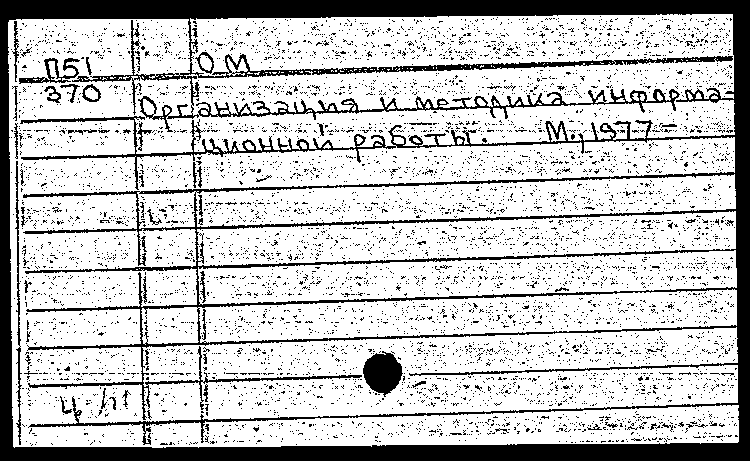 П51 ОМ
370
Организация и методика информа-
ционной работы. М., 1977-